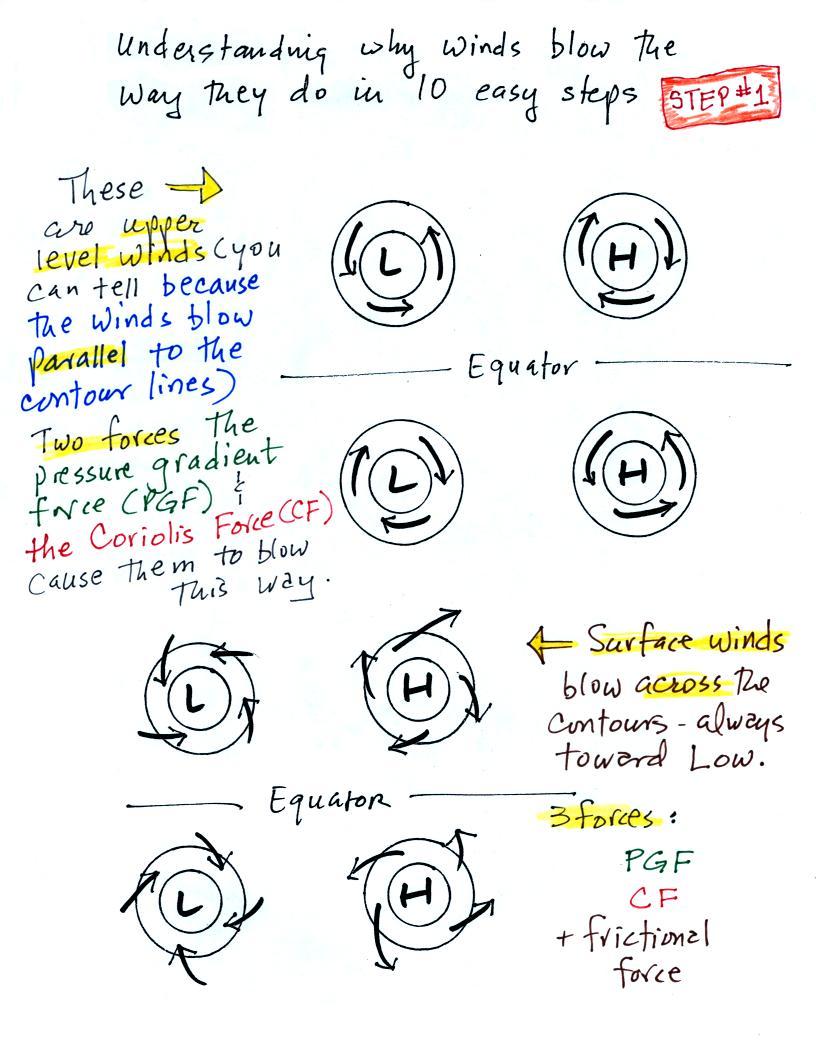 Understanding why winds blow the
way they do in 10 easy steps STEP #1
These →
are upper
level winds (you
can tell because
the winds blow
parallel to the
contour lines)
Two forces the
pressure gradient
force (PGF) &
the Coriolis Force (CF)
cause them to blow
This way.
L H
Equator
L H
L H
← Surface winds
blow across the
contours - always
toward Low.
Equator
3 forces:
PGF
CF
+ frictional
force
L H